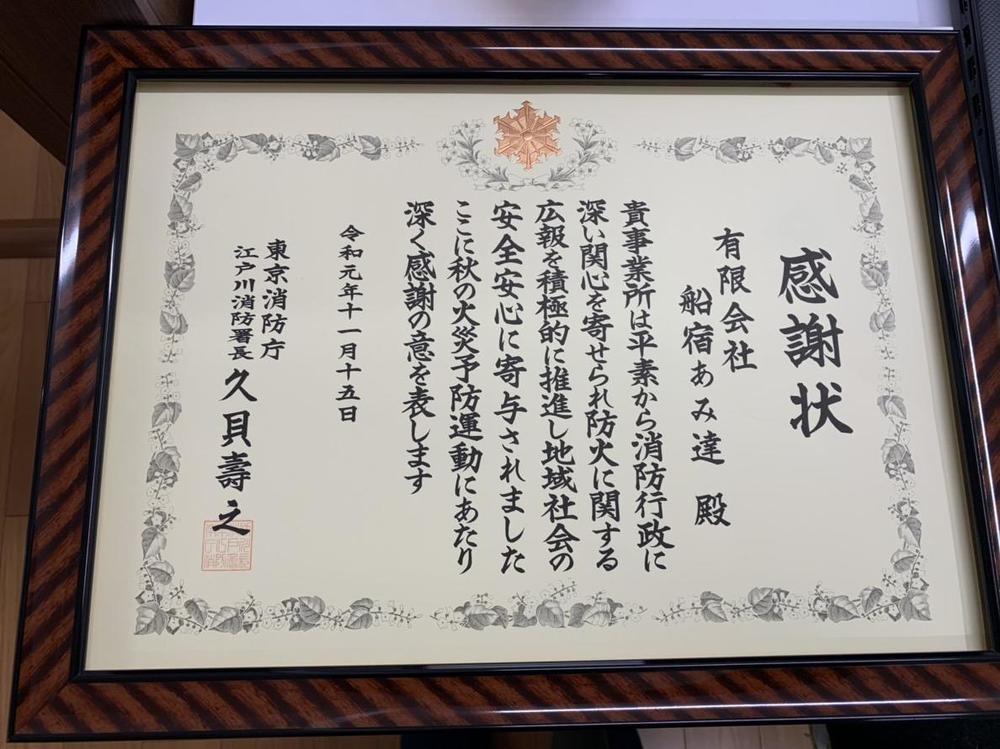 感謝状
有限会社
船宿あみ達 殿
貴事業所は平素から消防行政に
深い関心を寄せられ防火に関する
広報を積極的に推進し地域社会の
安全安心に寄与されました
ここに秋の火災予防運動にあたり
深く感謝の意を表します
令和元年十一月十五日
東京消防庁
江戸川消防署長 久貝壽之